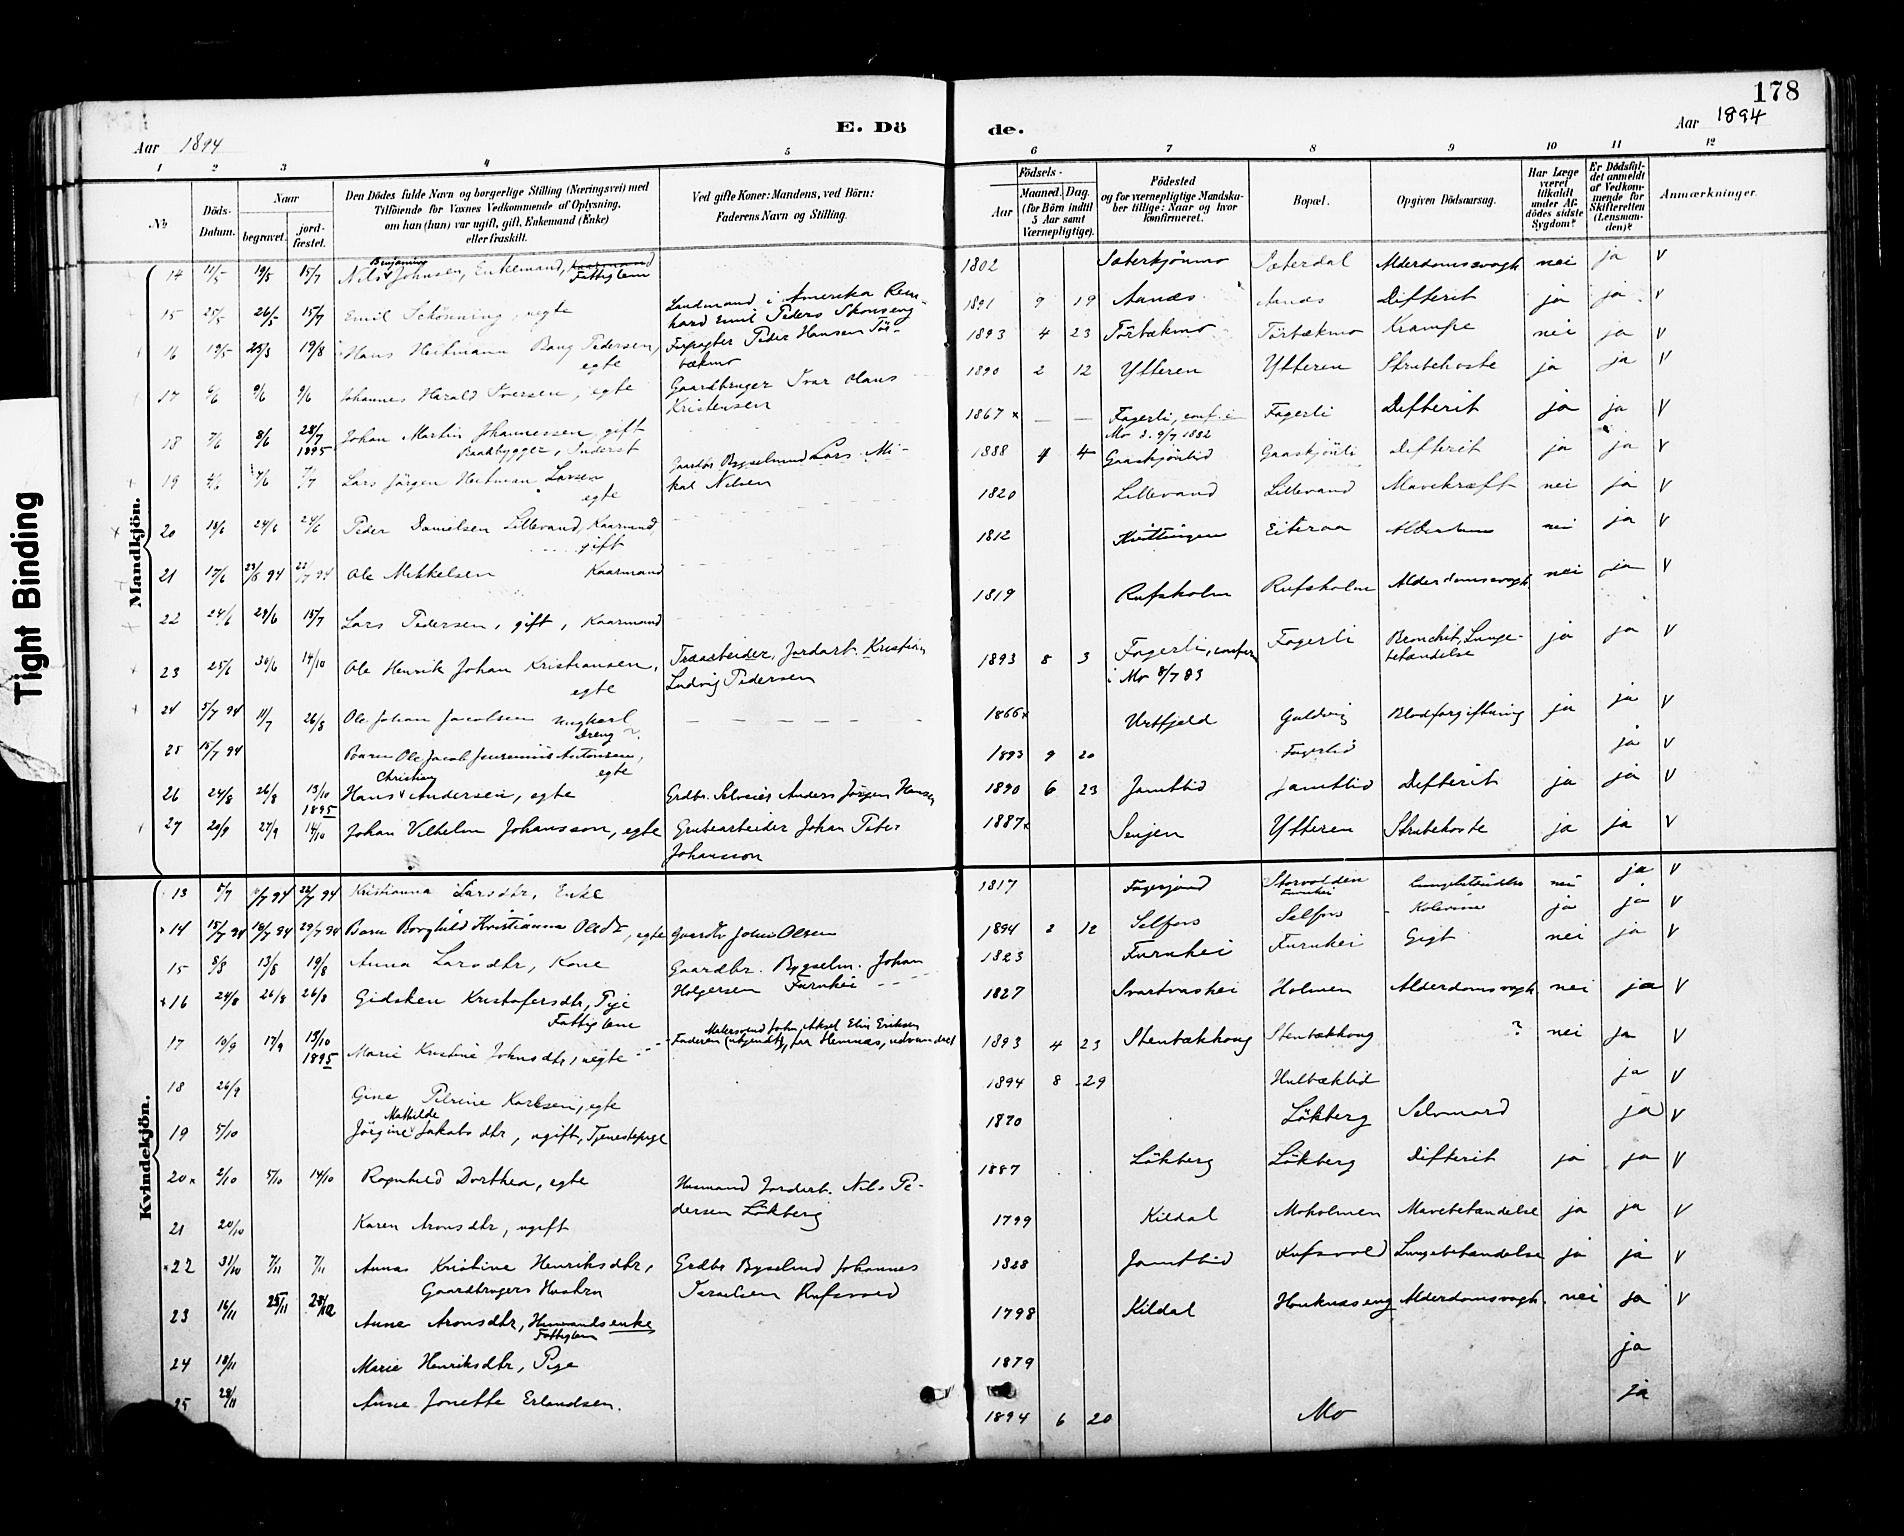 178
E. Dö de.
Aar 1894
Aar 1894
1 2 3 4 5 6 7 8 9 10 11 12
No
Döds-Datum.
Naar
begravet.
jord-fæstet.
Den Dödes fulde Navn og borgerlige Stilling (Næringsvei) med
Tilföiende for Voxnes Vedkommende af Oplysning,
om han (hun) var ugift, gift, Enkemand (Enke)
eller fraskilt.
Ved gifte Koner: Mandens, ved Börn:
Faderens Navn og Stilling.
Födsels-
Aar
Maaned. Dag.
(for Börn indtil
5 Aar samt
Værnepligtige).
Födested
og for værnepligtige Mandska-
ber tillige: Naar og hvor
konfirmeret.
Bopæl.
Opgiven Dödsaarsag.
Har Læge
været
tilkaldt
under Af-
dödes sidste
Sygdom?
Er Dödsfal-
det anmeldt
af Vedkom-
mende for
Skifteretten
(Lensman-
den)?
Anmærkninger.
Tight Binding
Mandkjön.
14 11/5 19/5 15/7 Nils Benjamin Johnsen, Enkemand, Fattiglem 1802 Sæterdal Alderdomssvagh nei ja V
15 25/5 26/5 15/7 Emil Schönning, uegte Landmand i Amerika Rein-
hard Emil Peders Skonseng 1891 9 19 Aanæs Aanæs Difterit ja ja V
16 19/5 19/8 Hans Heitmann Bang Pedersen,
egte Forpagter Peder Hansen Tör-
bækmo 1893 4 23 Törbækmo Törbækmo Krampe nei ja V
17 9/6 9/6 Johannes Harald Iversen, egte Gaardbruger Ivar Olaus
Kristensen 1890 2 12 Ytteren Ytteren Strubehoste ja ja V
18 7/6 8/6 28/7 1895 Johan Martin Johannessen, gift
Baadbygger, Inderst 1867 x — — Fagerli, conf. i
Mo d. 9/7 1882 Fagerli Difterit ja ja V
19 7/6 7/7 Lars Jörgen Heitman Larsen
egte Gaardbr Bygselmand Lars Mi-
kal Nilsen 1888 4 4 Gaaskjönlid Gaaskjönli Difterit ja ja V
20 18/6 24/6 24/6 Peder Danielsen Lillevand, Kaarmand,
gift 1820 Lillevand Lillevand Mavekræft nei ja V
21 17/6 94 94 Ole Mikkelsen Kaarmand 1812 Eiteraa Alderdom nei ja V
22 24/6 29/6 15/7 Lars Pedersen, gift, Kaarmand 1819 Rufsholm Rufsholm Alderdomssvagh nei ja V
23 25/6 30/6 14/10 Ole Henrik Johan Kristiansen,
egte Træarbeider, Jordarb. Kristian
Ludvig Pedersen 1893 8 3 Fagerli, confirm
i Mo 8/7 83 Fagerli Bronchit, Lunge-
betændelse ja ja V
24 5/7 94 11/7 26/8 Ole Johan Jacobsen ungkarl
Dreng 1866 x Urtfjeld Guldvig Blodforgiftning ja ja V
25 15/7 94 Barn Ole Jacob Antonsen,
egte 1893 9 20 Fagerlid ja V
26 24/8 26/8 13/10 1895 Hans Christian Andersen, egte Grdbr. Selveier Anders Jörgen Hansen 1890 6 23 Jamtlid Jamtlid Difterit ja ja V
27 20/9 27/9 14/10 Johan Vilhelm Johansson, egte Grubearbeider Johan Peter
Johansson 1887 x Senjen Ytteren Strubehoste ja ja V
Kvindekjön.
13 5/7 94 22/7 94 Kristianna Larsdtr, Enke 1817 Storvolden
Furuhei Lungebetændelse nei ja V
14 15/7 94 16/7 94 29/7 94 Barn Borghild Kristianna Olsdtr, egte Gaardbr John Olsen 1894 2 12 Selfors Selfors Kolerine ja ja V
15 8/8 13/8 19/8 Anna Larsdtr, Kone Gaardbr. Bygselm. Johan
Holgersen Furuhei 1823 Furuhei Furuhei Gigt nei ja V
16 24/8 26/8 26/8 Gidsken Kristofersdtr, Pige
Fattiglem 1827 Svartvashei Holmen Alderdomssvagh nei ja V
17 10/9 17/9 13/10 1895 Marie Kristine Johnsdtr, uegte Malersvend John Aksel Elin Eriksen
Faderen fra Hemnæs, udvandret 1893 4 23 Stenbækhaug Stenbækhaug ? nei ja V
18 26/9 Gine Petrine Karlsen, egte 1894 8 29 Hulbæklid ja V
19 5/10 Jörgine Mathilde Jakobsdtr, ugift, Tjenestepige 1870 Lökberg Selvmord ja V
20 x 2/10 5/10 14/10 Ragnhild Dorthea, egte Husmand Jordarb. Nils Pe-
dersen Lökberg 1887 Lökberg Lökberg Difterit ja ja V
21 20/10 Karen Aronsdtr, ugift 1799 Kildal Moholmen Mavebetændelse ja ja V
22 31/10 7/11 7/11 Annas Kristina Henriksdtr,
Gaardbrugers Hustru Grdbr Bygselmd Johannes
Israelsen Rufsvold 1828 Jamtlid Rufsvold Lungebetændelse ja ja V
23 16/11 25/11 Anne Aronsdtr, Husmandsenke
Fattiglem 1798 Kildal Hauknæsseng Alderdomssvagh. nei ja V
24 18/11 Marie Henriksdtr, Pige 1879 ja
25 28/11 Anne Jonette Erlandsen. 1894 6 20 Mo ja